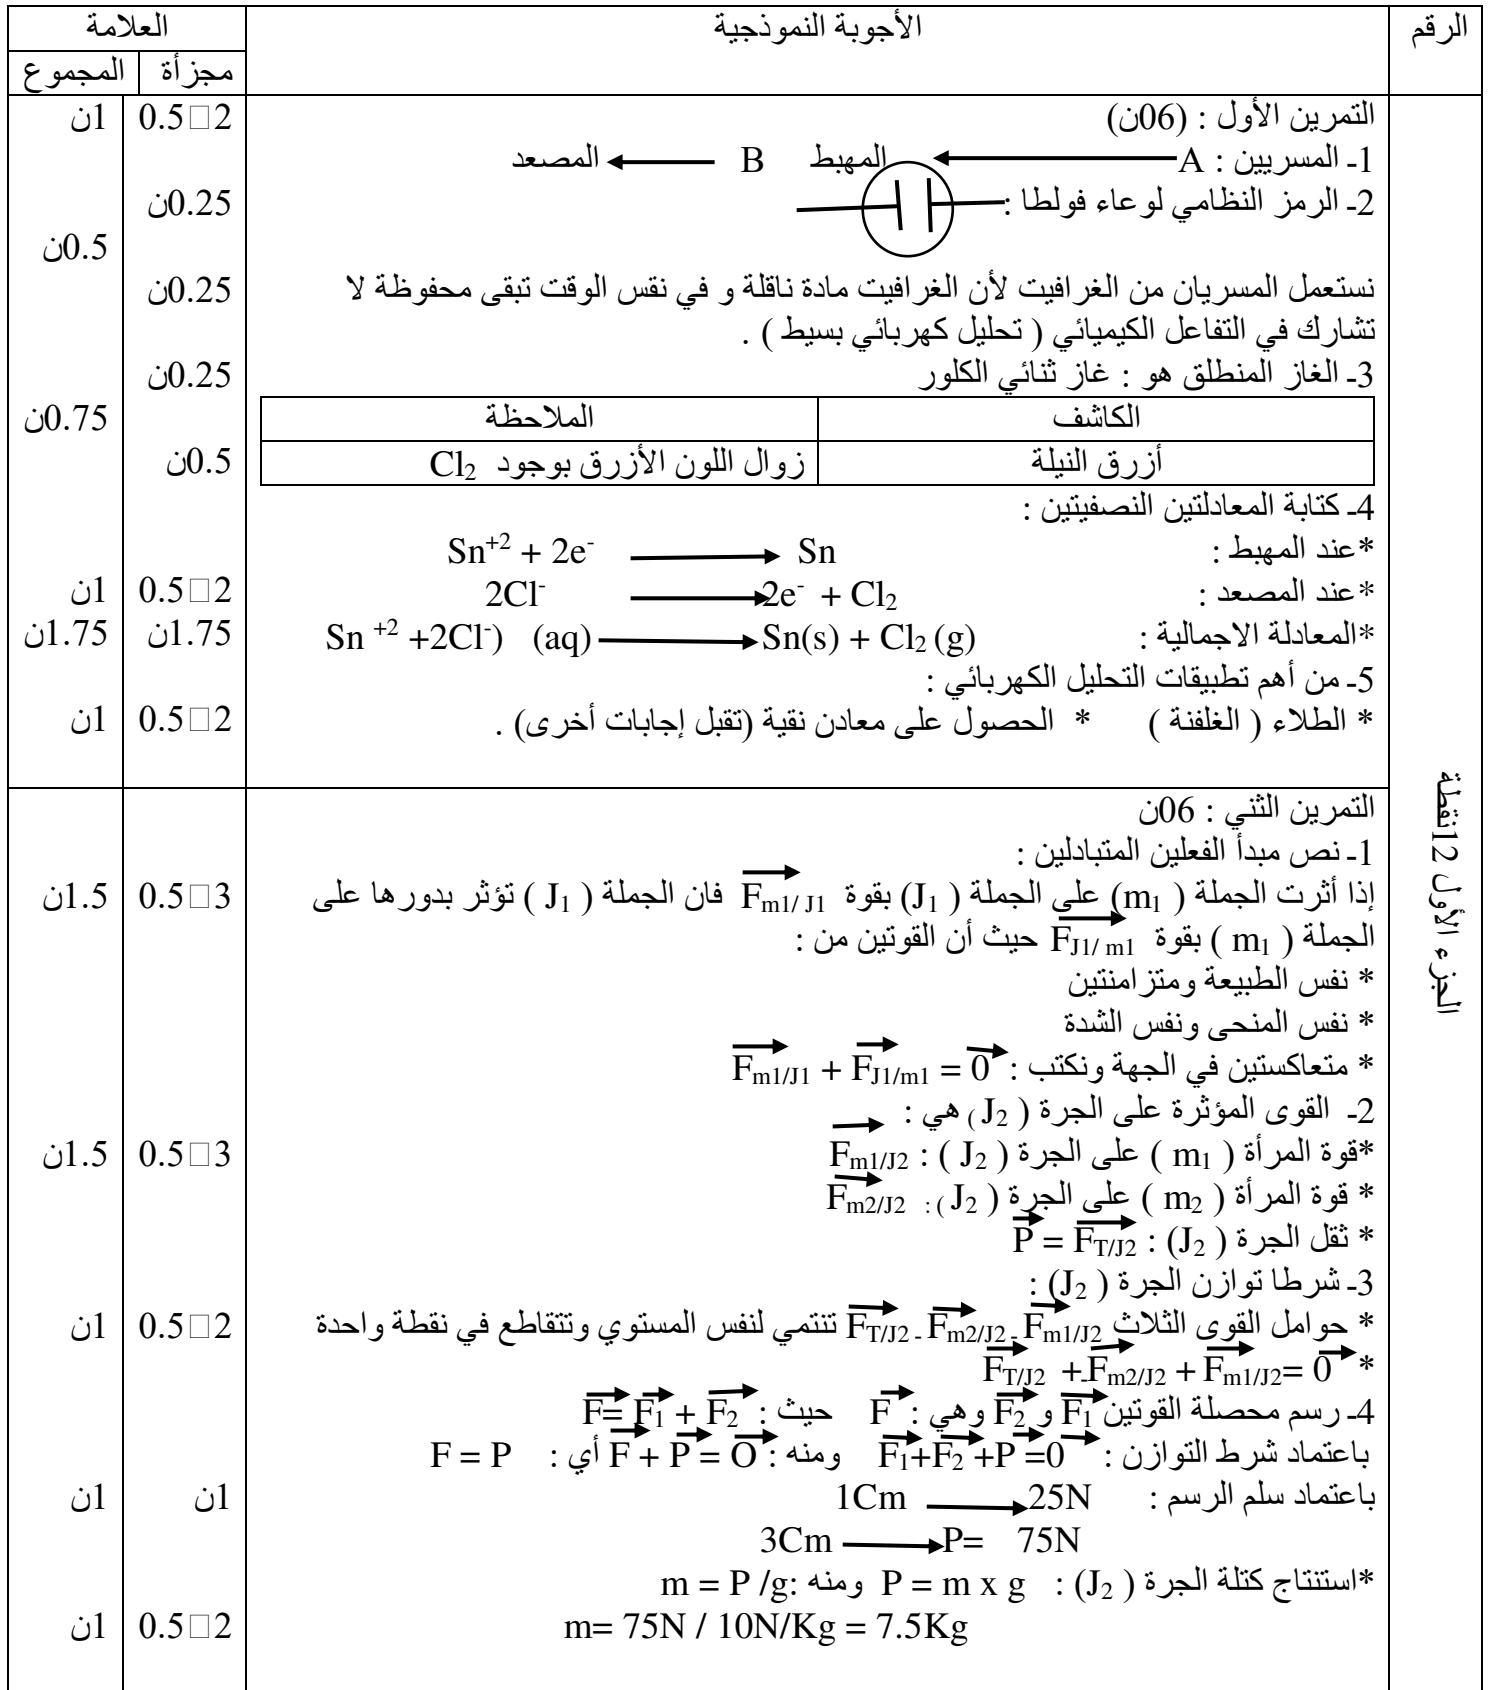 الرقم الأجوبة النموذجية العلامة
مجزأة المجموع
التمرين الأول : (06ن) 0.5□2 1ن
1ـ المسريين : A ⟵ المهبط B ⟵ المصعد
2ـ الرمز النظامي لوعاء فولطا : 0.25ن
0.5ن
نستعمل المسريان من الغرافيت لأن الغرافيت مادة ناقلة و في نفس الوقت تبقى محفوظة لا 0.25ن
تشارك في التفاعل الكيميائي ( تحليل كهربائي بسيط ) .
3ـ الغاز المنطلق هو : غاز ثنائي الكلور 0.25ن
الكاشف الملاحظة 0.75ن
أزرق النيلة زوال اللون الأزرق بوجود Cl₂ 0.5ن
4ـ كتابة المعادلتين النصفيتين :
*عند المهبط : Sn⁺² + 2e⁻ ⟶ Sn
*عند المصعد : 2Cl⁻ ⟶ 2e⁻ + Cl₂ 0.5□2 1ن
*المعادلة الاجمالية : Sn ⁺² +2Cl⁻) (aq) ⟶ Sn(s) + Cl₂ (g) 1.75ن 1.75ن
5ـ من أهم تطبيقات التحليل الكهربائي :
* الطلاء ( الغلفنة ) * الحصول على معادن نقية (تقبل إجابات أخرى) . 0.5□2 1ن
الجزء الأول 12نقطة
التمرين الثني : 06ن
1ـ نص مبدأ الفعلين المتبادلين :
إذا أثرت الجملة ( m₁) على الجملة ( J₁) بقوة F m1/ J1 فان الجملة ( J₁ ) تؤثر بدورها على 0.5□3 1.5ن
الجملة ( m₁ ) بقوة F J1/ m1 حيث أن القوتين من :
* نفس الطبيعة ومتزامنتين
* نفس المنحى ونفس الشدة
* متعاكستين في الجهة ونكتب : F m1/J1 + F J1/m1 = 0
2ـ القوى المؤثرة على الجرة ( J₂ ) هي :
*قوة المرأة ( m₁ ) على الجرة ( J₂ ) : F m1/J2 0.5□3 1.5ن
* قوة المرأة ( m₂ ) على الجرة ( J₂ ) : F m2/J2
* ثقل الجرة ( J₂) : P = F T/J2
3ـ شرطا توازن الجرة ( J₂) :
* حوامل القوى الثلاث F m1/J2 ـ F m2/J2 ـ F T/J2 تنتمي لنفس المستوي وتتقاطع في نقطة واحدة 0.5□2 1ن
* F T/J2 + F m2/J2 + F m1/J2 = 0
4ـ رسم محصلة القوتين F₁ و F₂ وهي : F حيث : F = F₁ + F₂
باعتماد شرط التوازن : F₁+F₂+P =0 ومنه : F + P = O أي : F = P
باعتماد سلم الرسم : 1Cm ⟶ 25N 1ن 1ن
3Cm ⟶ P= 75N
*استنتاج كتلة الجرة ( J₂) : P = m x g ومنه :m = P /g
m= 75N / 10N/Kg = 7.5Kg 0.5□2 1ن